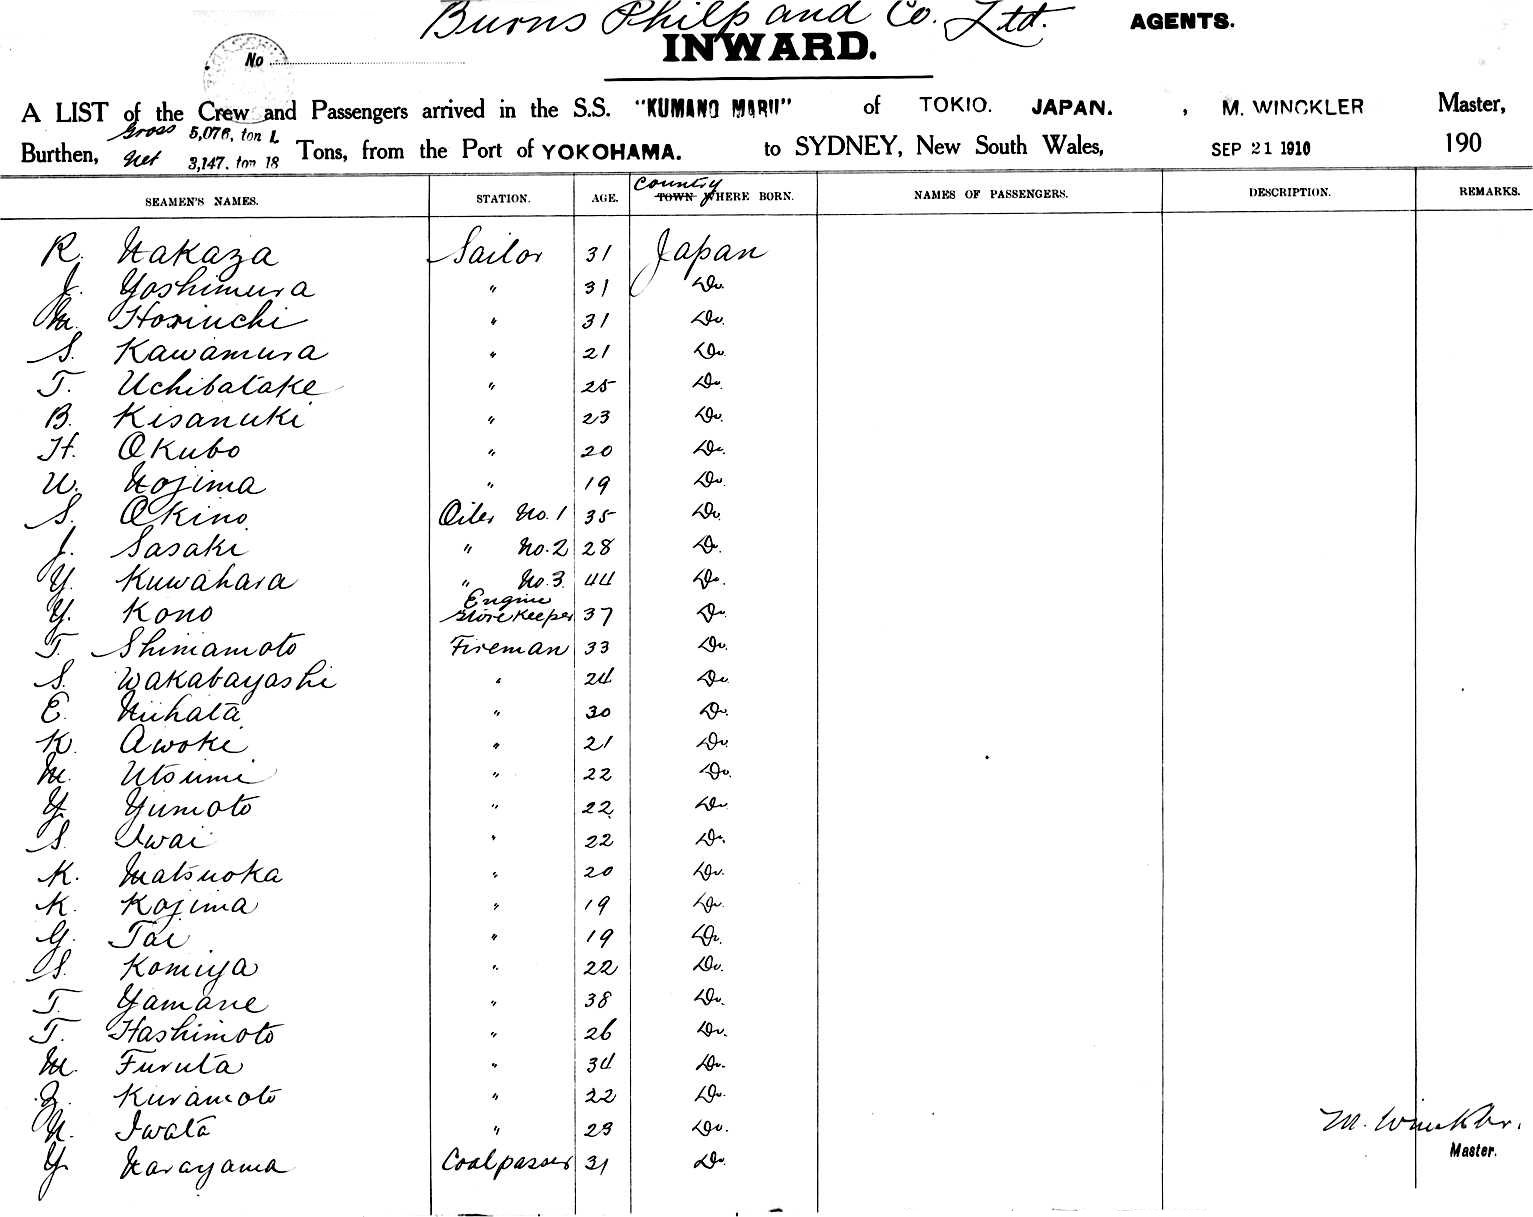 Burns Philp and Co. Ltd. AGENTS.
INWARD.
No
A LIST of the Crew and Passengers arrived in the S.S. "KUMANO MARU" of TOKIO. JAPAN. , M. WINCKLER Master,
Burthen, Gross 5,076, ton 1. Tons, from the Port of YOKOHAMA. to SYDNEY, New South Wales, SEP 21 1910 190
Net 3,147. ton 18
SEAMEN'S NAMES. STATION. AGE. Country TOWN WHERE BORN. NAMES OF PASSENGERS. DESCRIPTION. REMARKS.
R. Nakaza Sailor 31 Japan
J. Yoshimura " 31 Do.
M. Horiuchi " 31 Do.
S. Kawamura " 21 Do.
T. Uchibatake " 25 Do.
B. Kisanuki " 23 Do.
H. Okubo " 20 Do.
U. Nojima " 19 Do.
S. Okino Oiler No. 1 35 Do.
J. Sasaki " No. 2 28 Do.
Y. Kuwahara " No. 3 44 Do.
Y. Kono Engine Storekeeper 37 Do.
T. Shimamoto Fireman 33 Do.
S. Wakabayashi " 24 Do.
E. Niihata " 30 Do.
K. Awoki " 21 Do.
M. Utsumi " 22 Do.
Y. Yumoto " 22 Do.
S. Iwai " 22 Do.
K. Matsuoka " 20 Do.
K. Kojima " 19 Do.
G. Tai " 19 Do.
S. Komiya " 22 Do.
T. Yamane " 38 Do.
T. Hashimoto " 26 Do.
M. Furuta " 34 Do.
Z. Kuramoto " 22 Do.
N. Iwata " 23 Do.
Y. Narayama Coalpasser 31 Do.
M. Winckler.
Master.